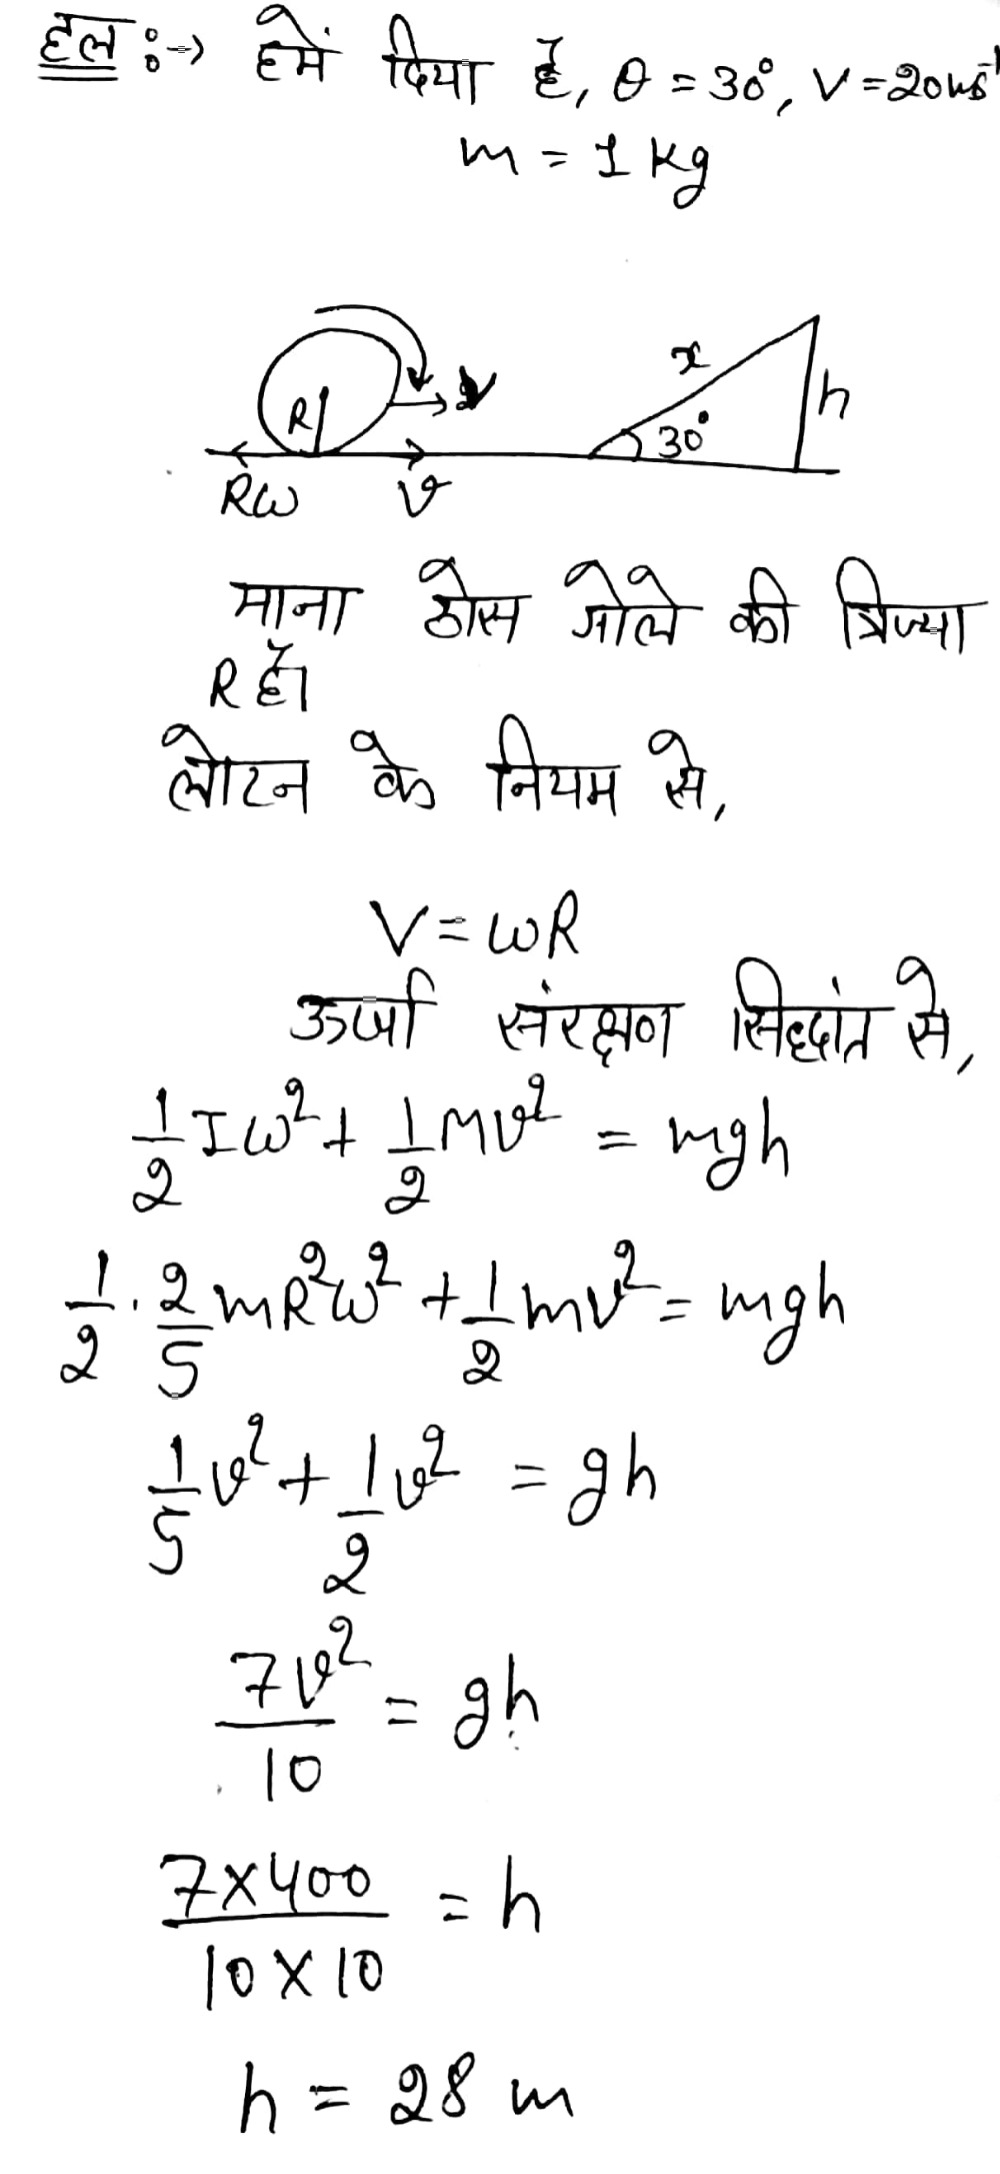 हल :→ हमें दिया है, θ = 30°, V = 20ms⁻¹
m = 1 Kg
x
h
R
V
30°
Rω
v
माना ठोस गोले की त्रिज्या
R है।
लोटन के नियम से,
V = ωR
ऊर्जा संरक्षण सिद्धांत से,
1/2 Iω² + 1/2 Mv² = mgh
1/2 · 2/5 mR²ω² + 1/2 mv² = mgh
1/5 v² + 1/2 v² = gh
7v²/10 = gh
7×400/10×10 = h
h = 28 m